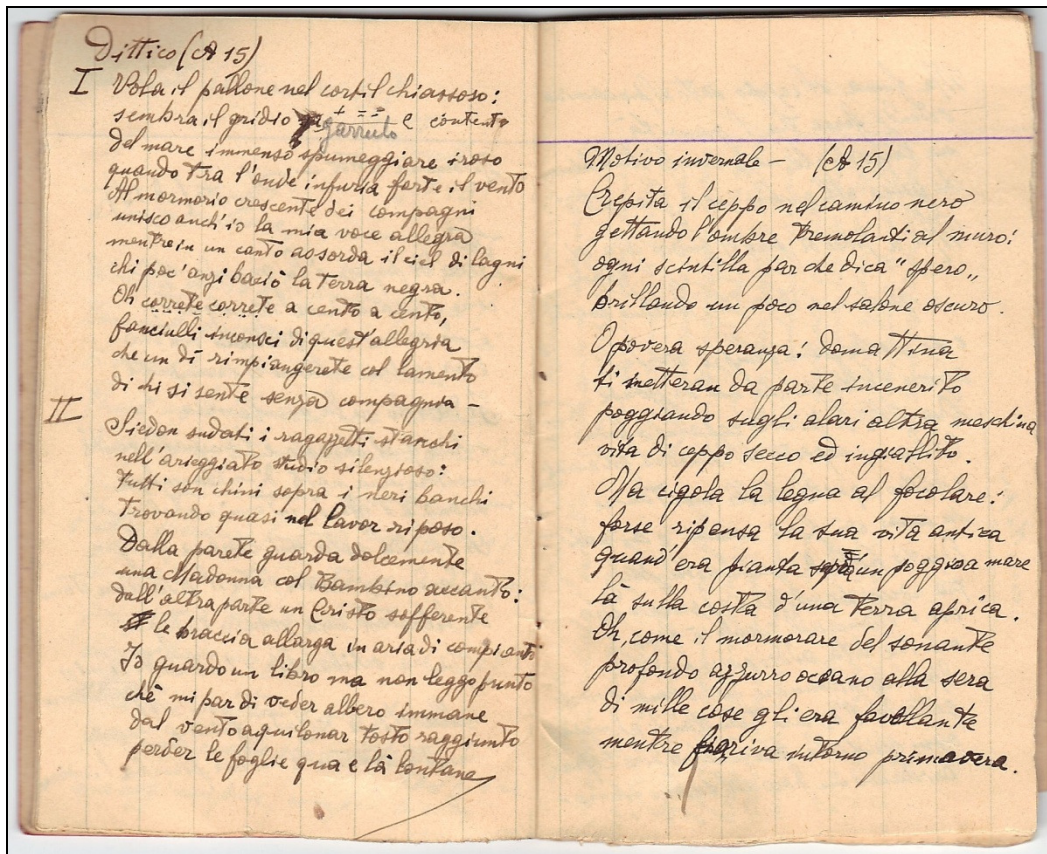 Dittico (A 15)
I
Vola il pallone nel cortil chiassoso:
sembra il gridio garrulo e contento
del mare immenso spumeggiare iroso
quando tra l'onde infuria forte il vento
Al mormorio crescente dei compagni
unisco anch'io la mia voce allegra
mentre in un canto assorda il ciel di lagni
chi poc'anzi baciò la terra negra.
Oh correte correte a cento a cento,
fanciulli inconsci di quest'allegria
che un dì rimpiangerete col lamento
di chi si sente senza compagnia –
II
Siedon sudati i ragazzetti stanchi
nell'arieggiato studio silenzioso:
tutti son chini sopra i neri banchi
trovando quasi nel lavor riposo.
Dalla parete guarda dolcemente
una Madonna col Bambino accanto:
dall'altra parte un Cristo sofferente
le braccia allarga in aria di compianto
Io guardo un libro ma non leggo punto
chè mi par di veder albero immane
dal vento aquilonar tosto raggiunto
perder le foglie qua e là lontane
Motivo invernale – (A 15)
Crepita il ceppo nel camino nero
gettando l'ombre tremolanti al muro:
ogni scintilla par che dica "spero„
brillando un poco nel salone oscuro.
O povera speranza! domattina
ti metteran da parte incenerito
poggiando sugli alari altra meschina
vita di ceppo secco ed ingiallito.
Ma cigola la legna al focolare:
forse ripensa la sua vita antica
quand'era pianta un poggio a mare
là sulla costa d'una terra aprica.
Oh, come il mormorare del sonante
profondo azzurro oceano alla sera
di mille cose gli era favellante
mentre fioriva intorno primavera.